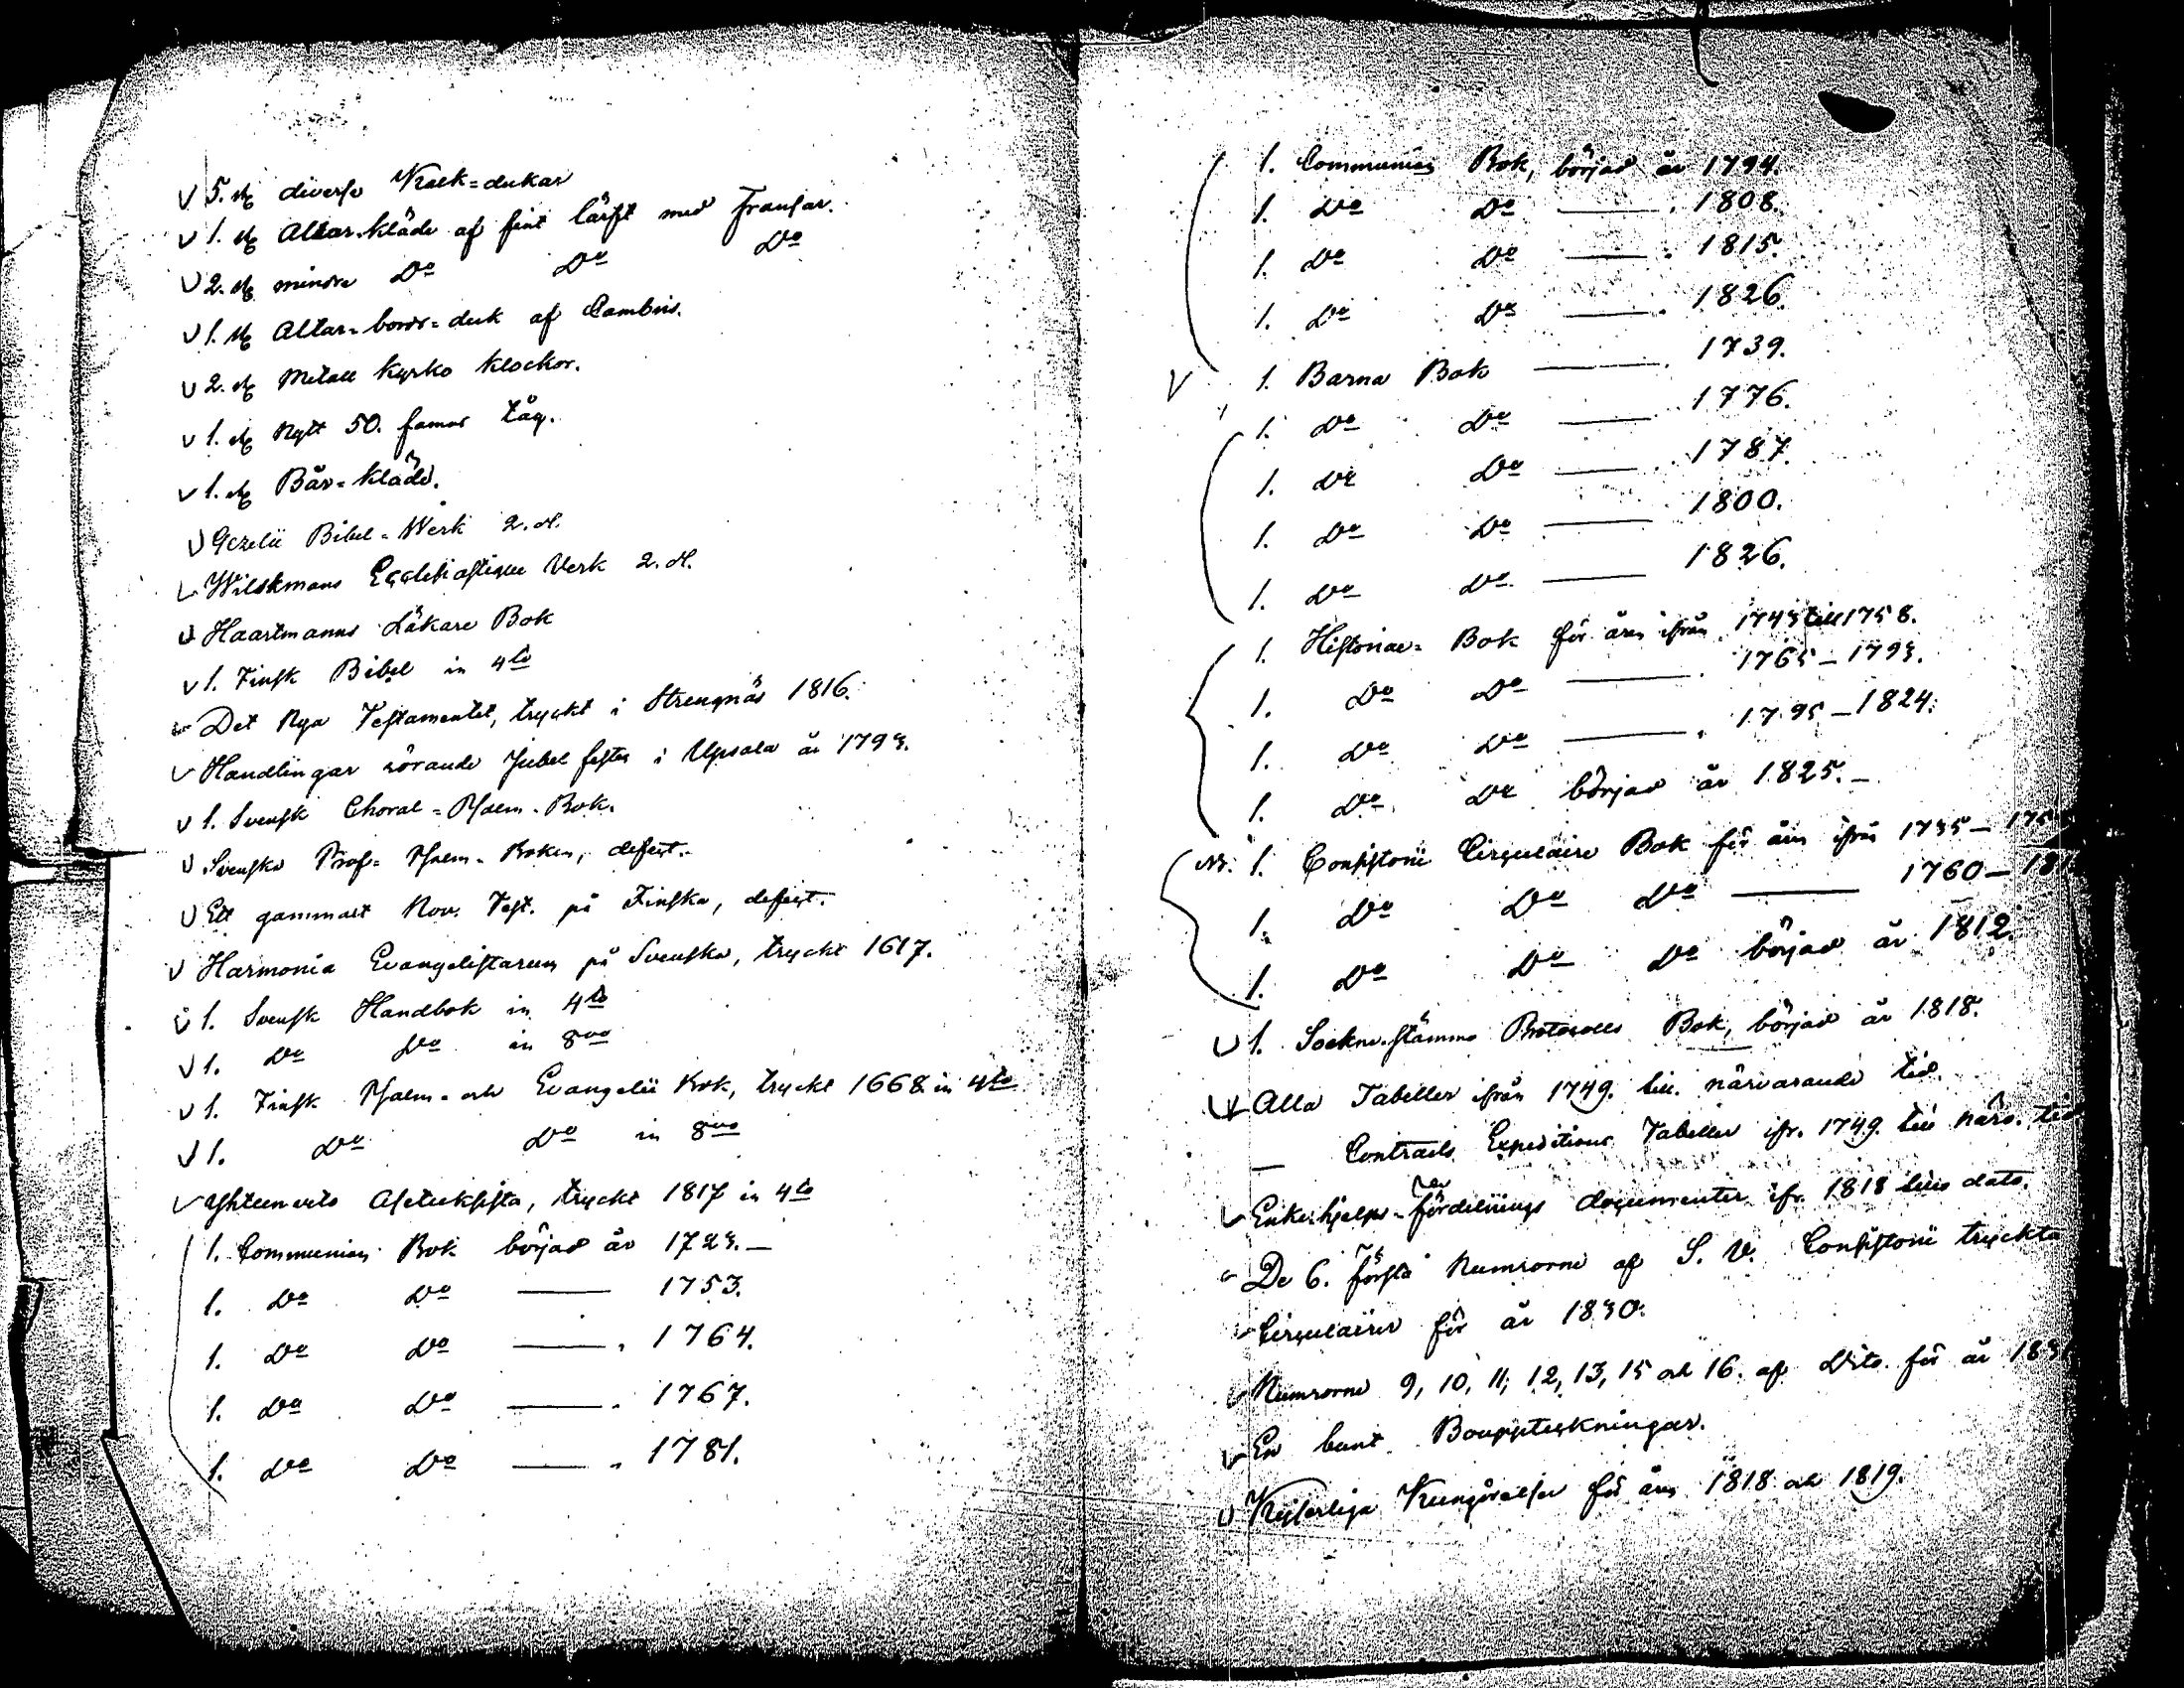 5. st. diverse Kalk=dukar
1. st. Altar-kläde af fint lärft med Fransar.
2. st. mindre Do Do Do
1. st. Altar-bords-duk af Cambric.
2. st. Metall Kyrko Klockor.
1. st. Nytt 50. famns Tåg.
1. st. Bår-kläde.
Gezelii Bibel-Werk 2. d.
Wilskmans Ecclesiastique Verk 2. d.
Haartmanns Läkare Bok
1. Finsk Bibel in 4to
Det Nya Testamentet, tryckt i Strengnäs 1816.
Handlingar rörande Jubel festen i Upsala år 1793.
1. Svensk Choral-Psalm-Bok.
Svenska Prof-Psalm-Boken, defect.
Ett gammalt Nov. Test. på Finska, defect.
Harmonia Evangelistarum på Svenska, tryckt 1617.
1. Svensk Handbok in 4to
1. Do Do in 8vo
1. Finsk Psalm- och Evangelii Bok, tryckt 1668 in 4to
1. Do Do in 8vo
Yhteenveto Asetuksista, tryckt 1817 in 4to
1. Communion Bok börjad år 1723.—
1. Do Do — 1753.
1. Do Do — 1764.
1. Do Do — 1767.
1. Do Do — 1781.
1. Communion Bok, börjad år 1794.
1. Do Do — 1808.
1. Do Do — 1815.
1. Do Do — 1826.
1. Barna Bok — 1739.
1. Do Do — 1776.
1. Do Do — 1787.
1. Do Do — 1800.
1. Do Do — 1826.
1. Historiae-Bok för åren ifrån 1743 till 1758.
1. Do Do — 1765—1793.
1. Do Do — 1795—1824.
1. Do Do börjad år 1825.—
1. Consistorii Circulaire Bok för åren ifrån 1735—175
1. Do Do Do — 1760—181
1. Do Do Do börjad år 1812.
1. Sockne-stämmo Protocolls Bok, börjad år 1818.
Alla Tabeller ifrån 1749. till närvarande tid.
— Contracts Expeditions Tabeller ifr. 1749. till närv. tid
Enke-hjelps-fördelnings documenter ifr. 1818 till dato.
De 6. första Numrorne af S. V. Consistorii tryckta
Circulairer för år 1830.
Numrorne 9, 10, 11, 12, 13, 15 och 16. af Dito för år 1831
En bunt Bouppteckningar.
Kejserliga Kungörelser för åren 1818 och 1819.